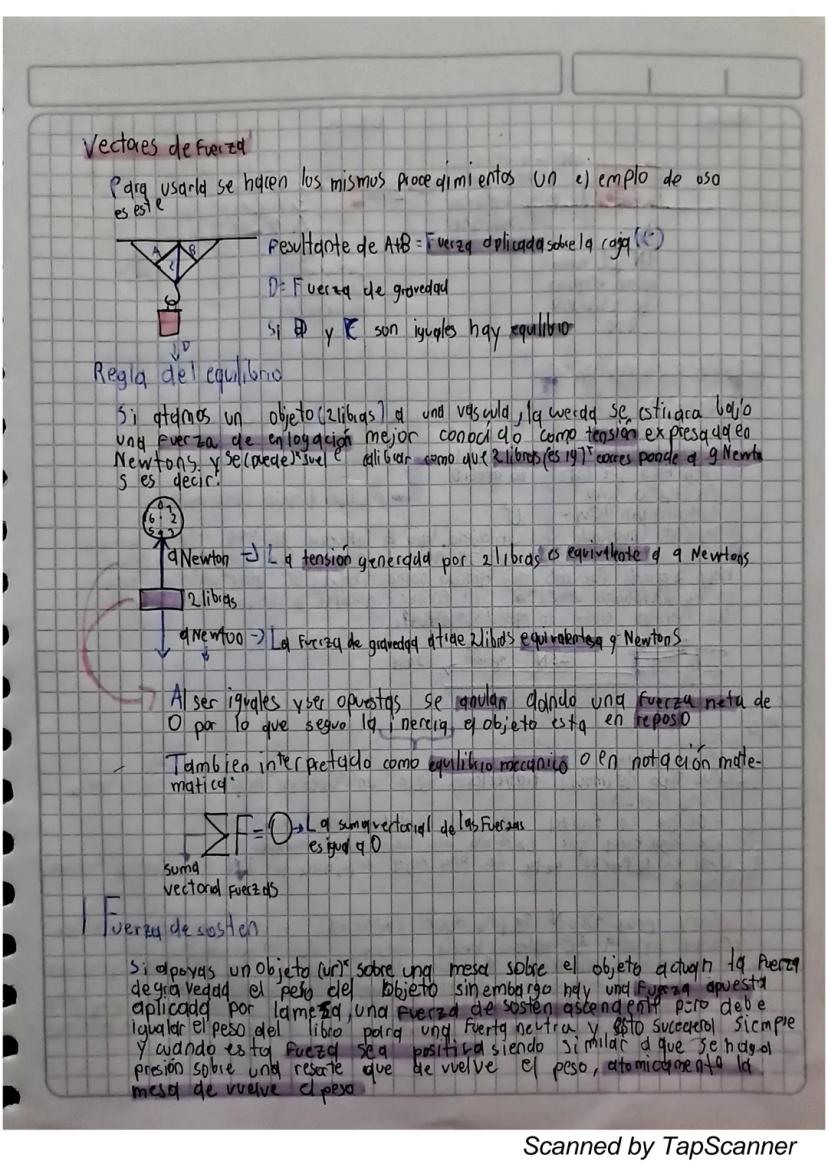 Vectores de Fuerza
Para usarla se hacen los mismos procedimientos un ejemplo de oso
es este
A B
C
Resultante de A+B = Fuerza aplicada sobre la caja (C)
D = Fuerza de gravedad
Si D y C son iguales hay equlibrio
D
Regla del equlibrio
Si atamos un objeto (2 libras) a una vascula, la cuerda se estirara bajo
una fuerza de enlogación mejor conocido como tensión expresada en
Newtons y se (puede)* suele calibrar como que 2 libras (es 19)* corresponde a 9 Newto
s es decir:
9 Newton → La tensión generada por 2 libras es equivalente a 9 Newtons
2 libras
9 Newton → La Fuerza de gravedad atrae 2 libras equivalentes a 9 Newtons
Al ser iguales y ser opuestas se anulan dando una fuerza neta de
0 por lo que segun la inercia el objeto esta en reposo
Tambien interpretado como equilibrio mecanico o en notación mate-
matica:
ΣF=0→ La suma vectorial de las Fuerzas
es igual a 0
suma
vectorial Fuerzas
Fuerza de sosten
Si apoyas un objeto (un)* sobre una mesa sobre el objeto actuan la fuerza
de gravedad el peso del objeto sin embargo hay una fuerza apuesta
aplicada por la mesa, una fuerza de sosten ascendente pero debe
igualar el peso del libro para una fuerta neutra y esto sucedera siempre
y cuando esta fueza sea positiva siendo similar a que se haga
presión sobre una resorte que de vuelve el peso, atomicamente la
mesa de vuelve el peso
Scanned by TapScanner